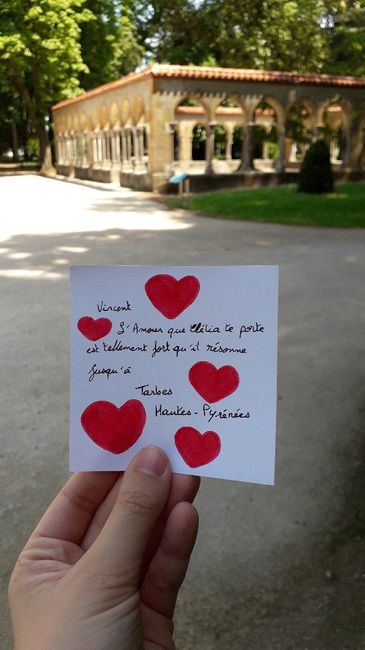 Vincent
L'Amour que Clélia te porte
est tellement fort qu'il résonne
jusqu'à
Tarbes
Hautes-Pyrénées